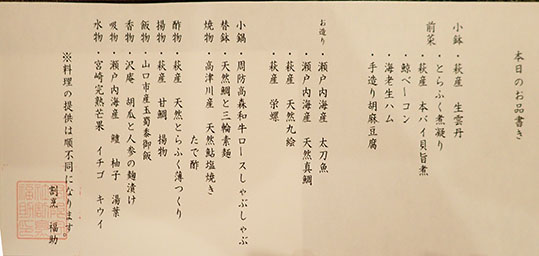 本日のお品書き
小鉢・萩産 生雲丹
前菜・とらふく煮凝り
・萩産 本バイ貝旨煮
・鯨ベーコン
・海老生ハム
・手造り胡麻豆腐
お造り・瀬戸内海産 太刀魚
・瀬戸内海産 天然真鯛
・萩産 天然九絵
・萩産 栄螺
小鍋・周防高森和牛ロースしゃぶしゃぶ
替鉢・天然鯛と三輪素麺
焼物・高津川産 天然鮎塩焼き
たで酢
酢物・萩産 天然とらふく薄つくり
揚物・萩産 甘鯛 揚物
飯物・山口市産玉蜀黍御飯
香物・沢庵 胡瓜と人参の麹漬け
吸物・瀬戸内海産 鱧 柚子 湯葉
水物・宮崎完熟芒果 イチゴ キウイ
※料理の提供は順不同になります。
割烹 福助